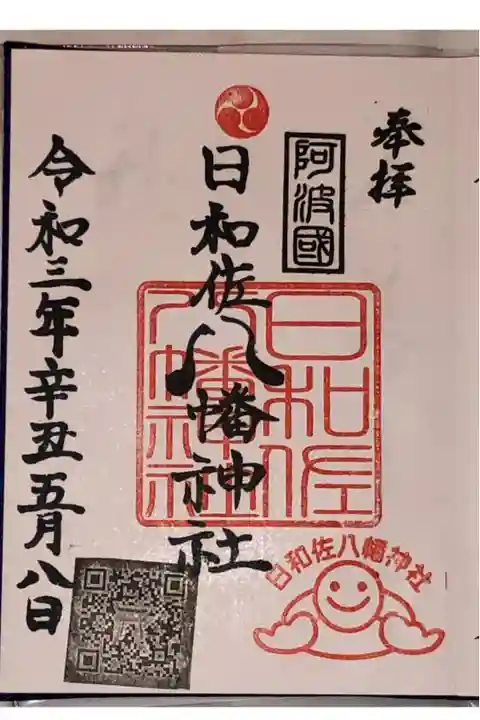 奉拝
阿波國
日和佐八幡神社
日和佐
八幡神社
日和佐八幡神社
令和三年辛丑五月八日